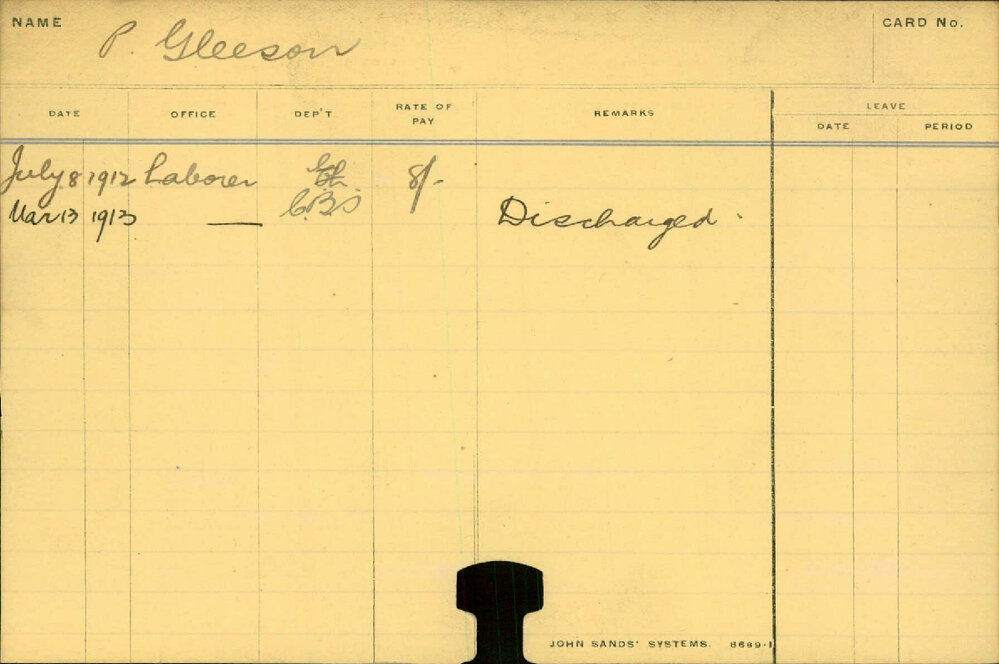 NAME P. Gleeson CARD No.
DATE OFFICE DEP'T RATE OF PAY REMARKS LEAVE
DATE PERIOD
July 8 1912 Laborer 8/-
Mar 13 1913 — C.B.S Discharged.
JOHN SANDS' SYSTEMS. 8689-1